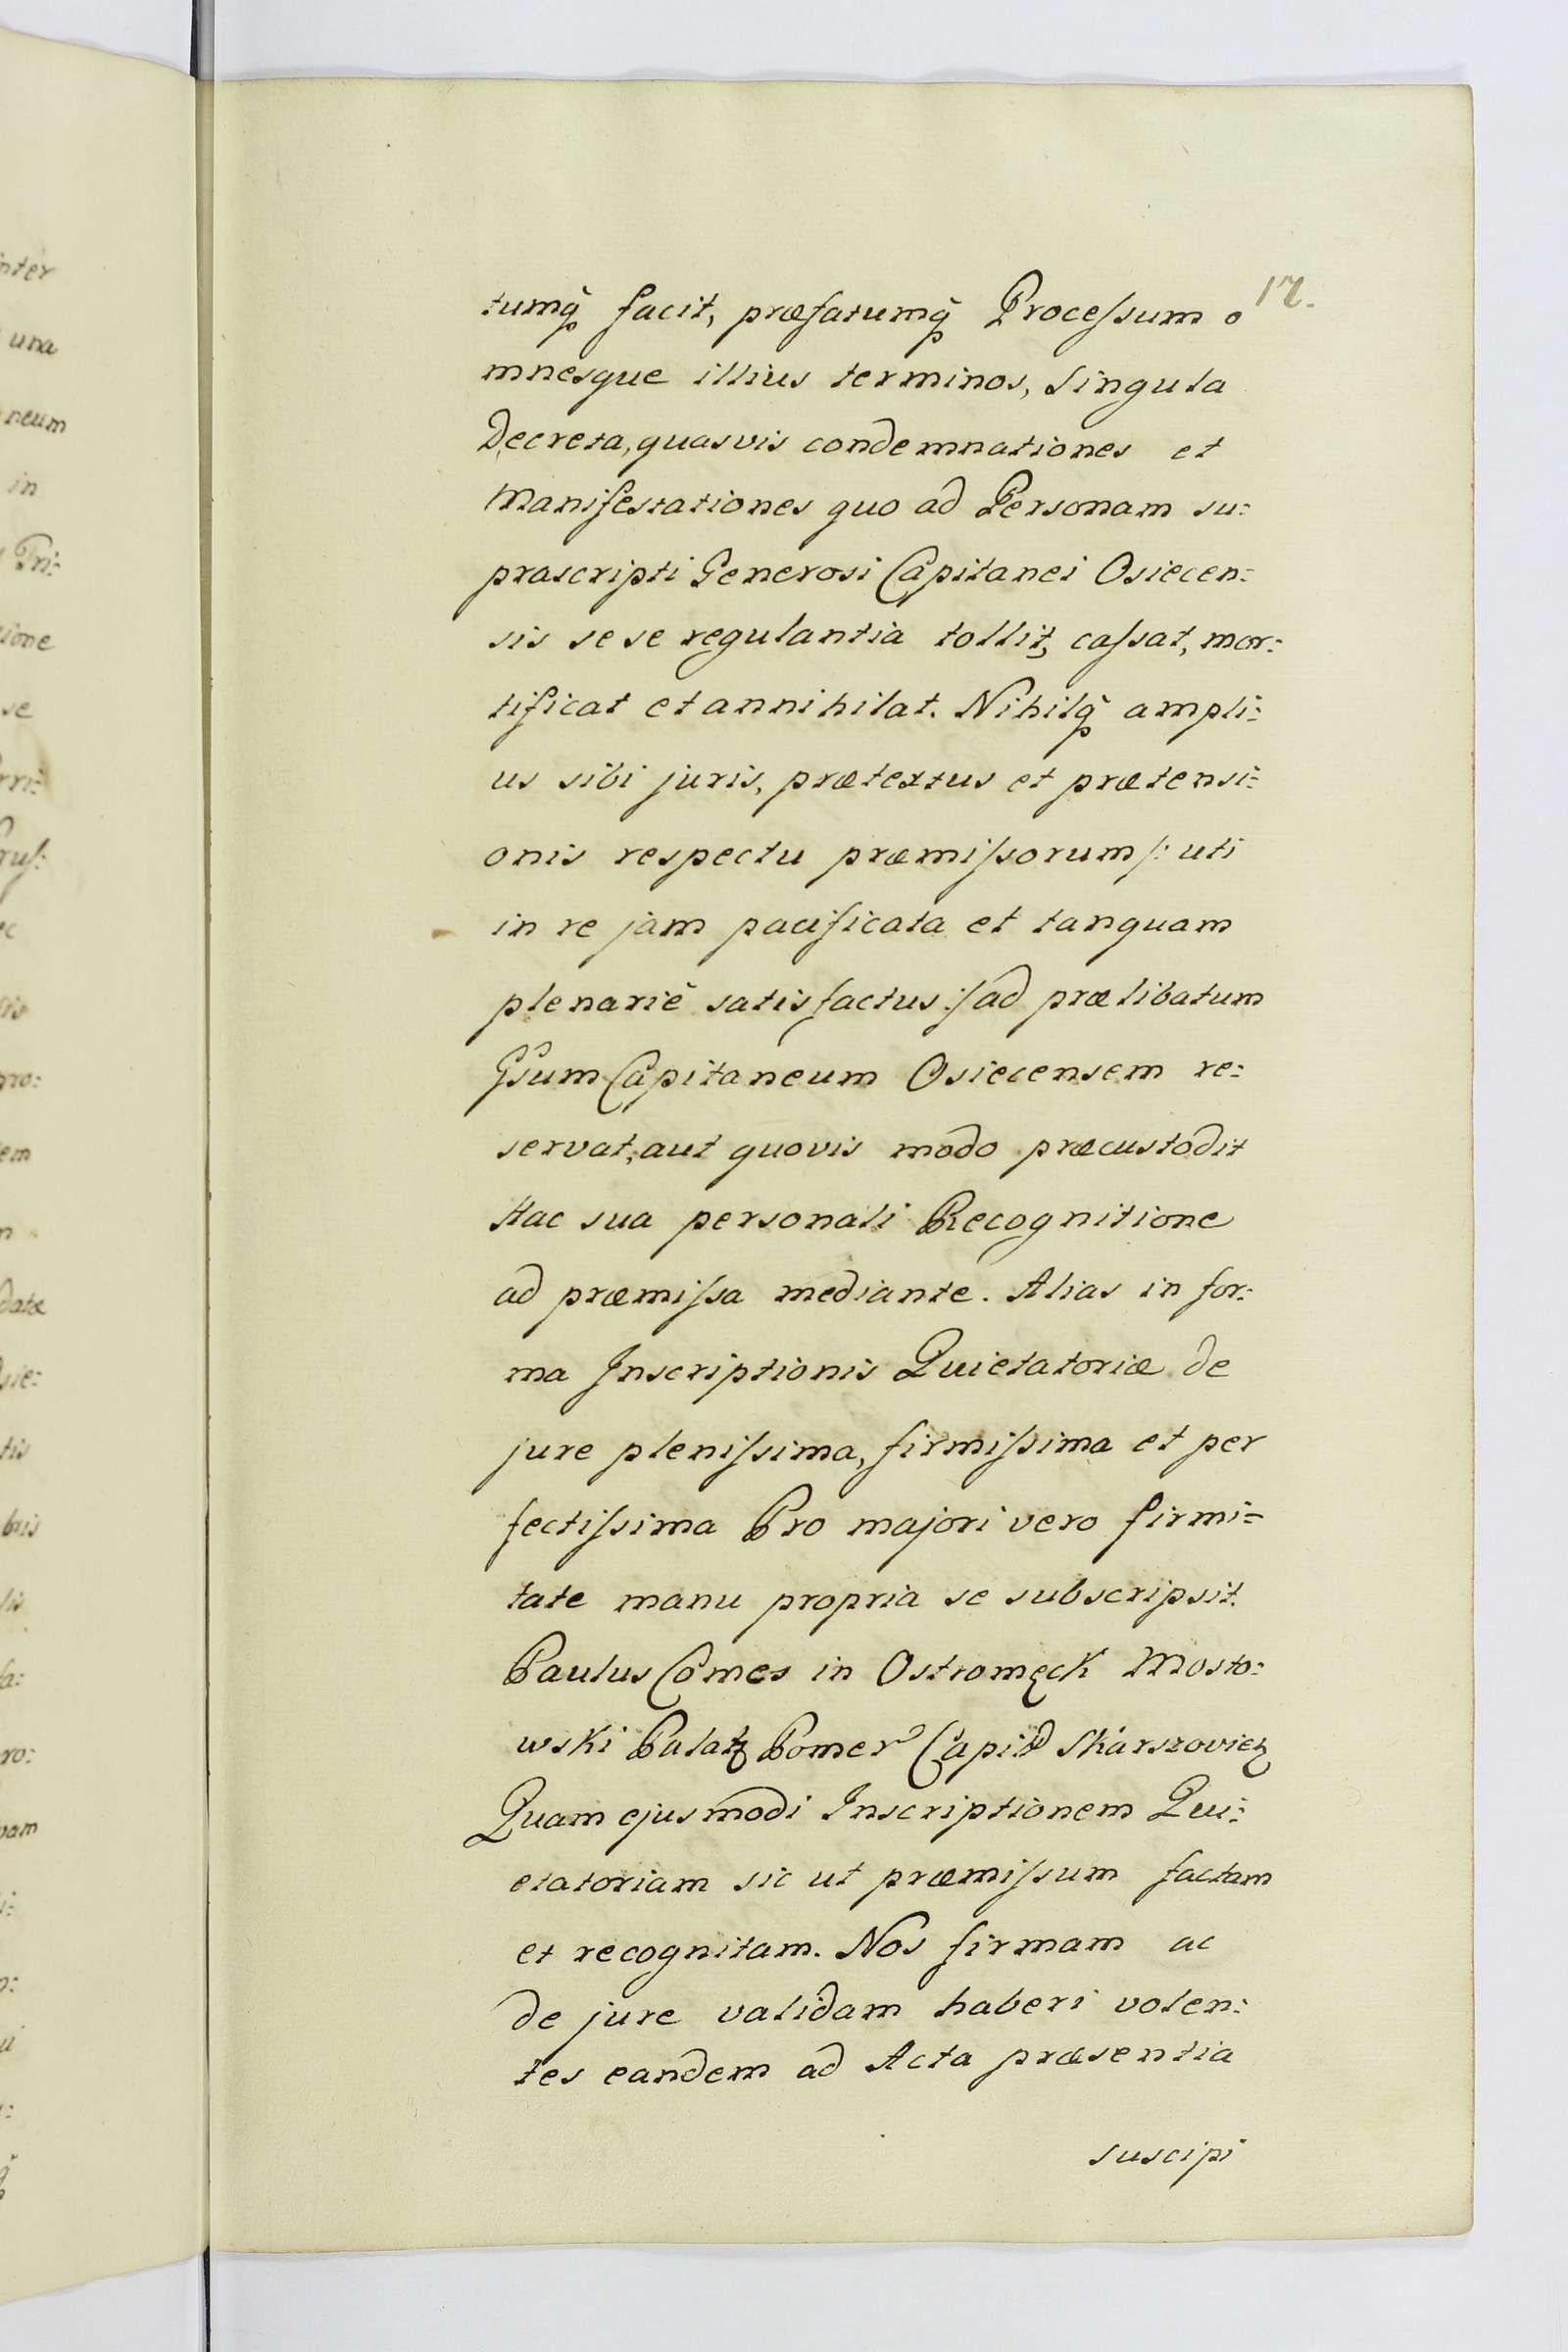 12.
tumq̃ facit, præfatumq̃ Processum o
mnesque illius terminos, singula
Decreta, quasvis condemnationes et
Manifestationes quo ad Personam su:
prascripti Generosi Capitanei Osiecen:
sis sese regulantia tollit, cassat, mor:
tificat et annihilat. Nihilq̃ ampli:
us sibi juris, prætextus et prætensi:
onis respectu præmissorum /: uti
in re jam pacificata et tanquam
plenariè satisfactus :/ ad prælibatum
Gsum Capitaneum Osiecensem re:
servat, aut quovis modo præcustodit
Hac sua personali Recognitione
ad præmissa mediante. Alias in for:
ma Inscriptionis Quietatoriæ de
jure plenissima, firmissima et per
fectissima Pro majori vero firmi=
tate manu propria se subscripsit.
Paulus Comes in Ostromęck Mosto:
wski Palat Pomer Capit Skarszoviens
Quam ejusmodi Inscriptionem Qui:
etatoriam sic ut præmissum factam
et recognitam. Nos firmam ac
de jure validam haberi volen:
tes eandem ad Acta præsentia
suscipi
nter
una
neum
in
Tri:
ione
se